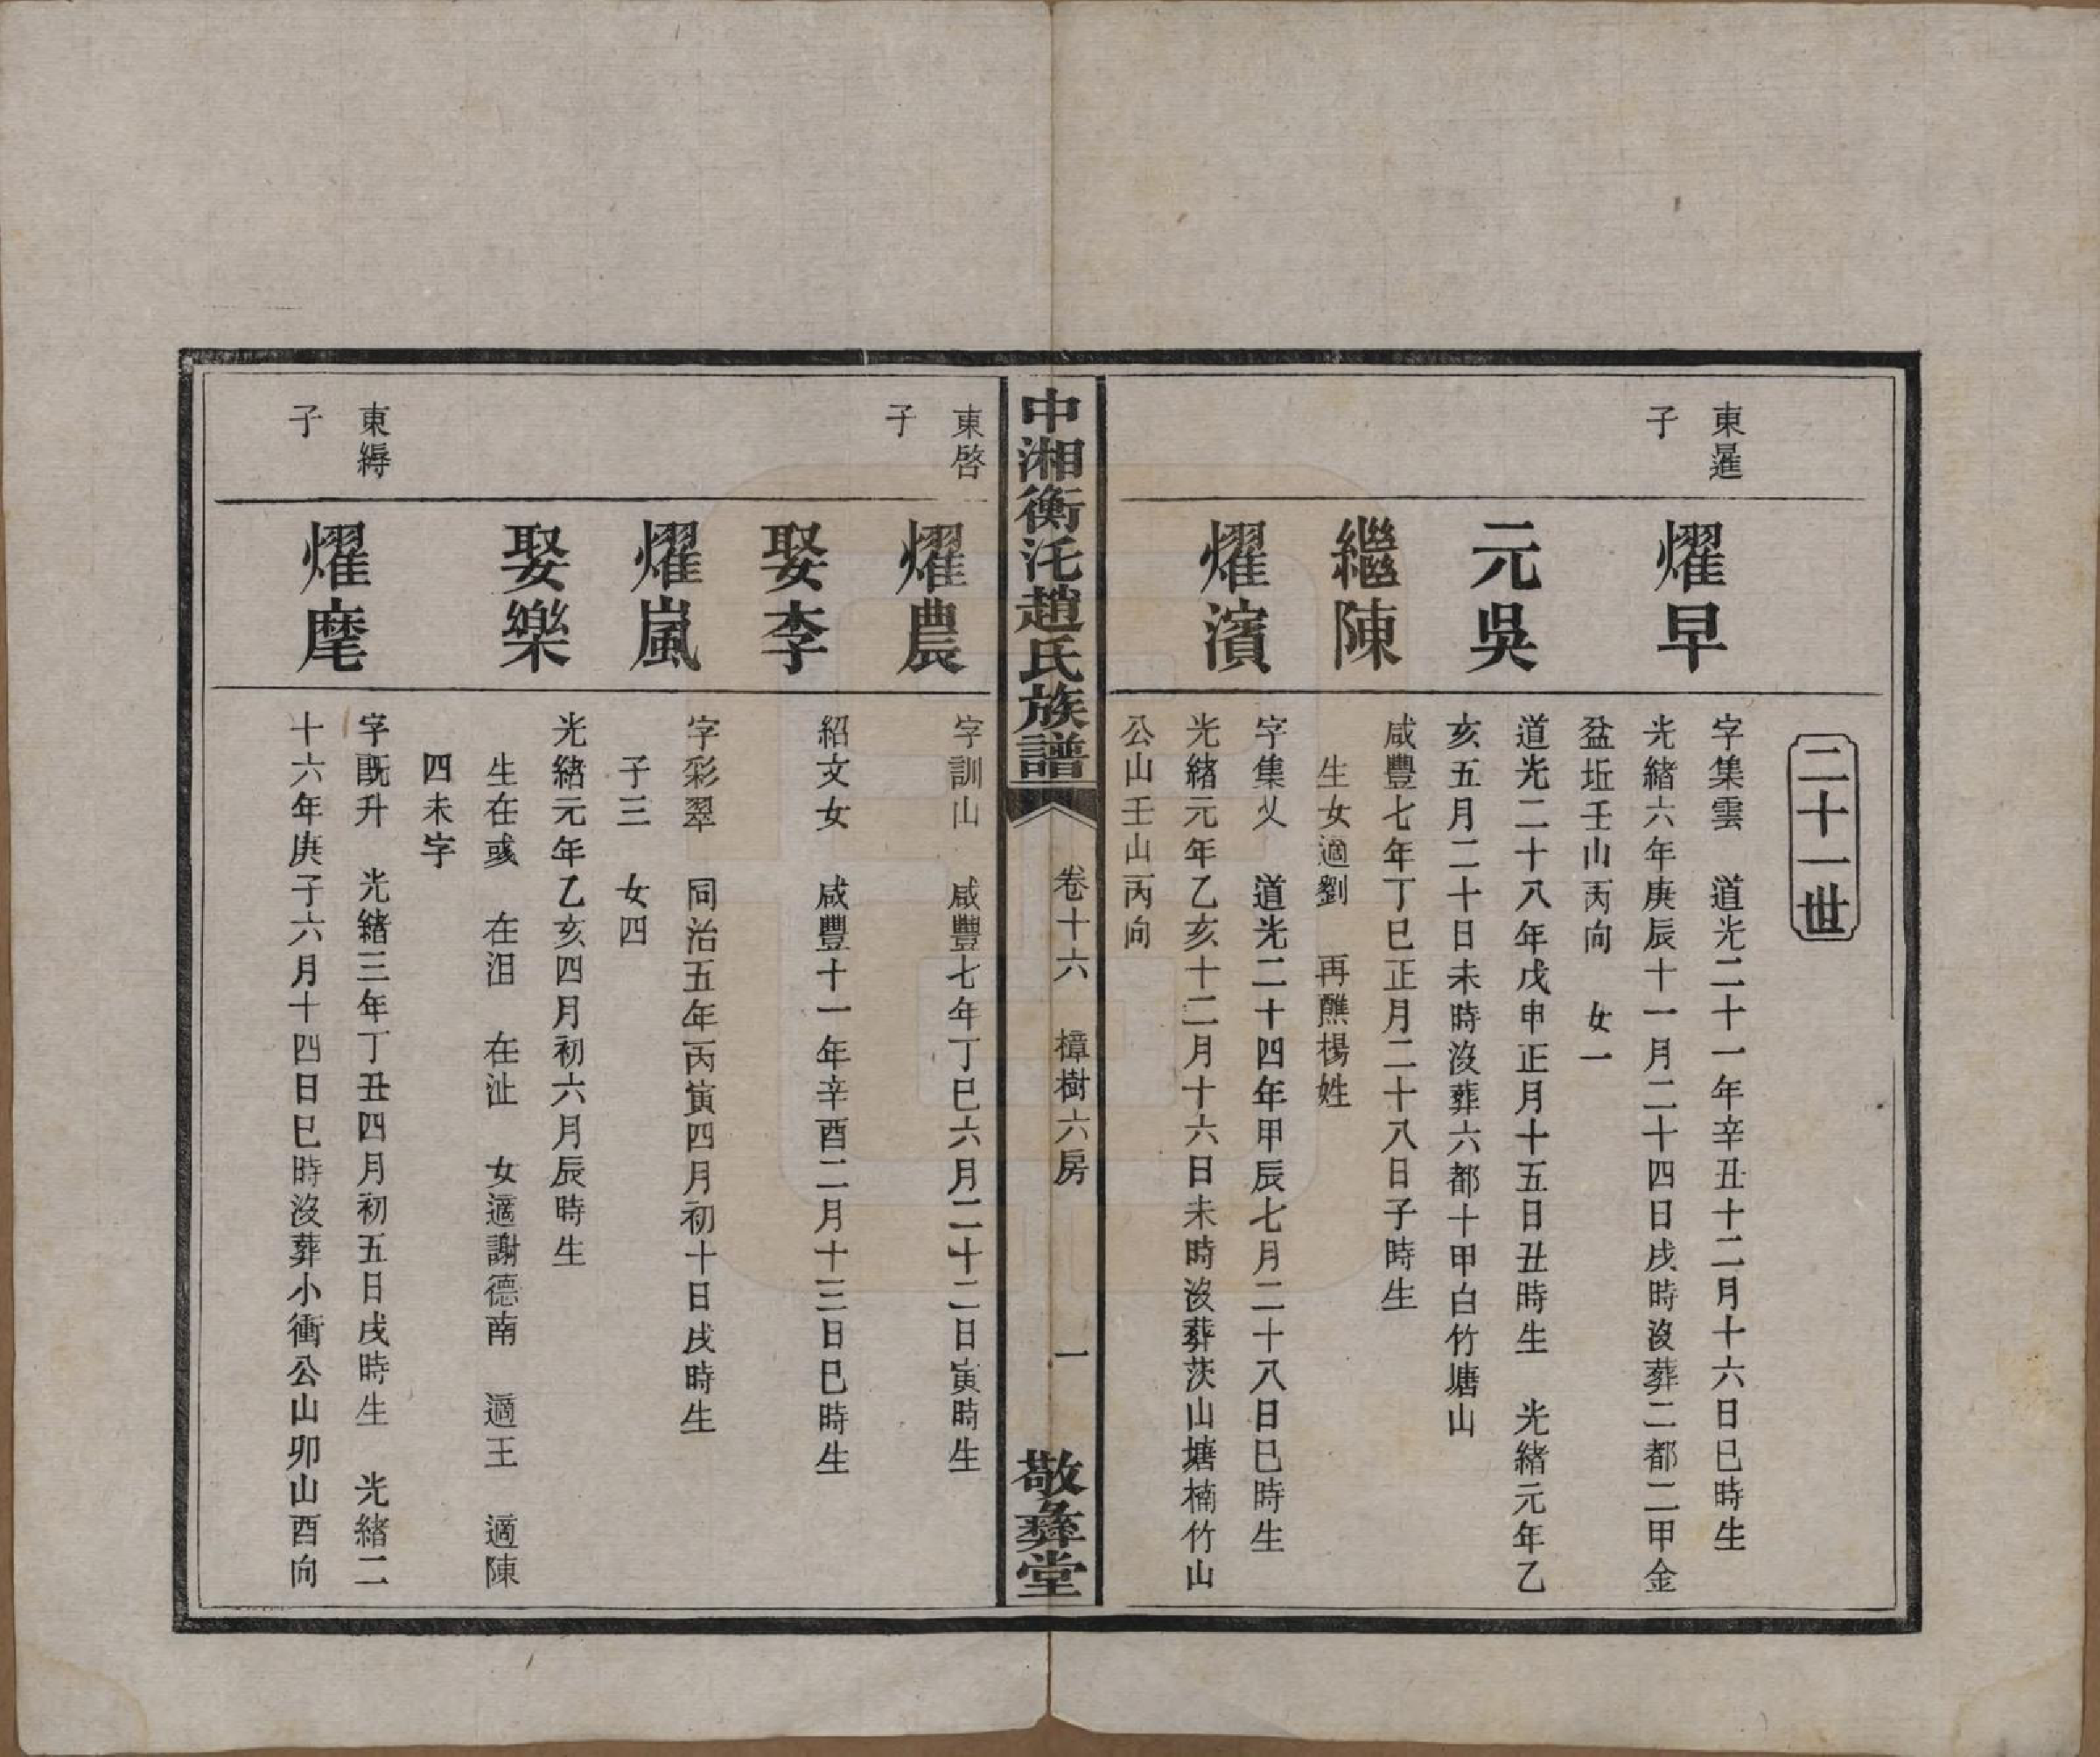 二十一世
東暹
子
燿早
字集雲　道光二十一年辛丑十二月十六日巳時生
光緒六年庚辰十一月二十四日戌時沒葬二都二甲金
盆坵壬山丙向　女一
元吳
道光二十八年戊申正月十五日丑時生　光緒元年乙
亥五月二十日未時沒葬六都十甲白竹塘山
繼陳
咸豐七年丁巳正月二十八日子時生
生女適劉　再醮楊姓
燿濱
字集乂　道光二十四年甲辰七月二十八日巳時生
光緒元年乙亥十二月十六日未時沒葬茨山塘楠竹山
公山壬山丙向
中湘衡汑趙氏族譜
卷十六　樟樹六房
一
敬彝堂
東啓
子
燿農
字訓山　咸豐七年丁巳六月二十二日寅時生
娶李
紹文女　咸豐十一年辛酉二月十三日巳時生
燿嵐
字彩翠　同治五年丙寅四月初十日戌時生
子三　女四
娶樂
光緒元年乙亥四月初六月辰時生
生在彧　在泪　在沚　女適謝德南　適王　適陳
四未字
東縟
子
燿麾
字旣升　光緒三年丁丑四月初五日戌時生　光緒二
十六年庚子六月十四日巳時沒葬小衝公山卯山酉向